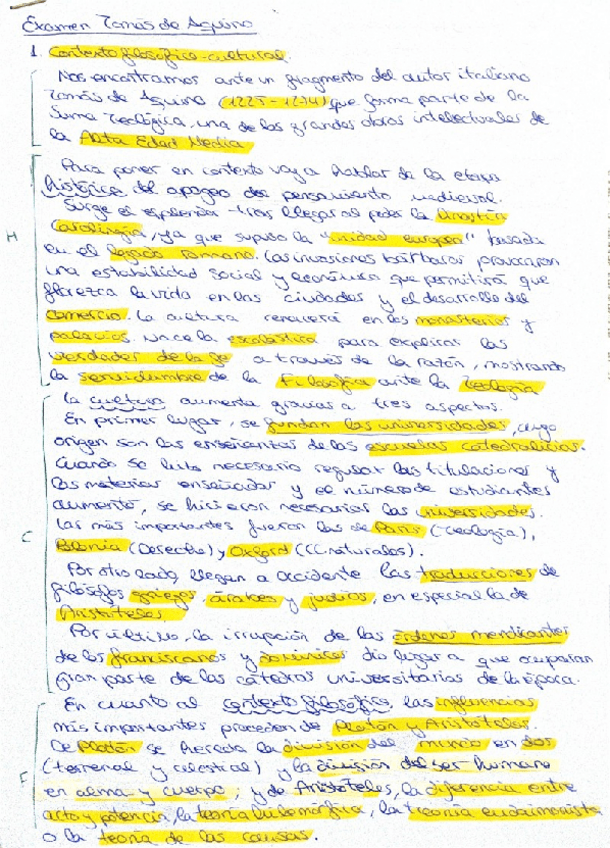 Examen Tomás de Aquino
1. Contexto filosófico-cultural.
Nos encontramos ante un fragmento del autor italiano
Tomás de Aquino (1225-1274) que forma parte de la
Suma Teológica, una de las grandes obras intelectuales de
la Alta Edad Media
Para poner en contexto voy a hablar de la etapa
histórica del apogeo del pensamiento medieval.
Surge el esplendor tras llegar al poder la Dinastía
Carolingia, ya que supuso la "unidad europea" basada
en el legado romano. Las invasiones bárbaras provocaron
una estabilidad social y económica que permitirá que
florezca la vida en las ciudades y el desarrollo del
H
comercio. La cultura renacerá en los monasterios y
palacios. Nace la escolástica para explicar las
verdades de la fe a través de la razón, mostrando
la servidumbre de la Filosofía ante la Teología
La cultura aumenta gracias a tres aspectos.
En primer lugar, se fundan las universidades, cuyo
origen son las enseñanzas de las escuelas catedralicias.
Cuando se hizo necesario regular las titulaciones y
las materias enseñadas y el número de estudiantes
aumentó, se hicieron necesarias las universidades.
Las más importantes fueron las de París (Teología),
C
Bolonia (Derecho) y Oxford (CC.naturales).
Por otro lado, llegan a Occidente las traducciones de
filósofos griegos, árabes y judíos, en especial la de
Aristóteles.
Por último, la irrupción de las órdenes mendicantes
de los franciscanos y dominicos dio lugar a que ocuparan
gran parte de las cátedras universitarias de la época.
En cuanto al contexto filosófico, las influencias
más importantes proceden de Platón y Aristóteles.
De Platón se hereda la división del mundo en dos
(terrenal y celestial) y la división del ser humano
F
en alma y cuerpo; y de Aristóteles, la diferencia entre
acto y potencia, la teoría hilemórfica, la teoría eudaimonista
o la teoría de las causas.